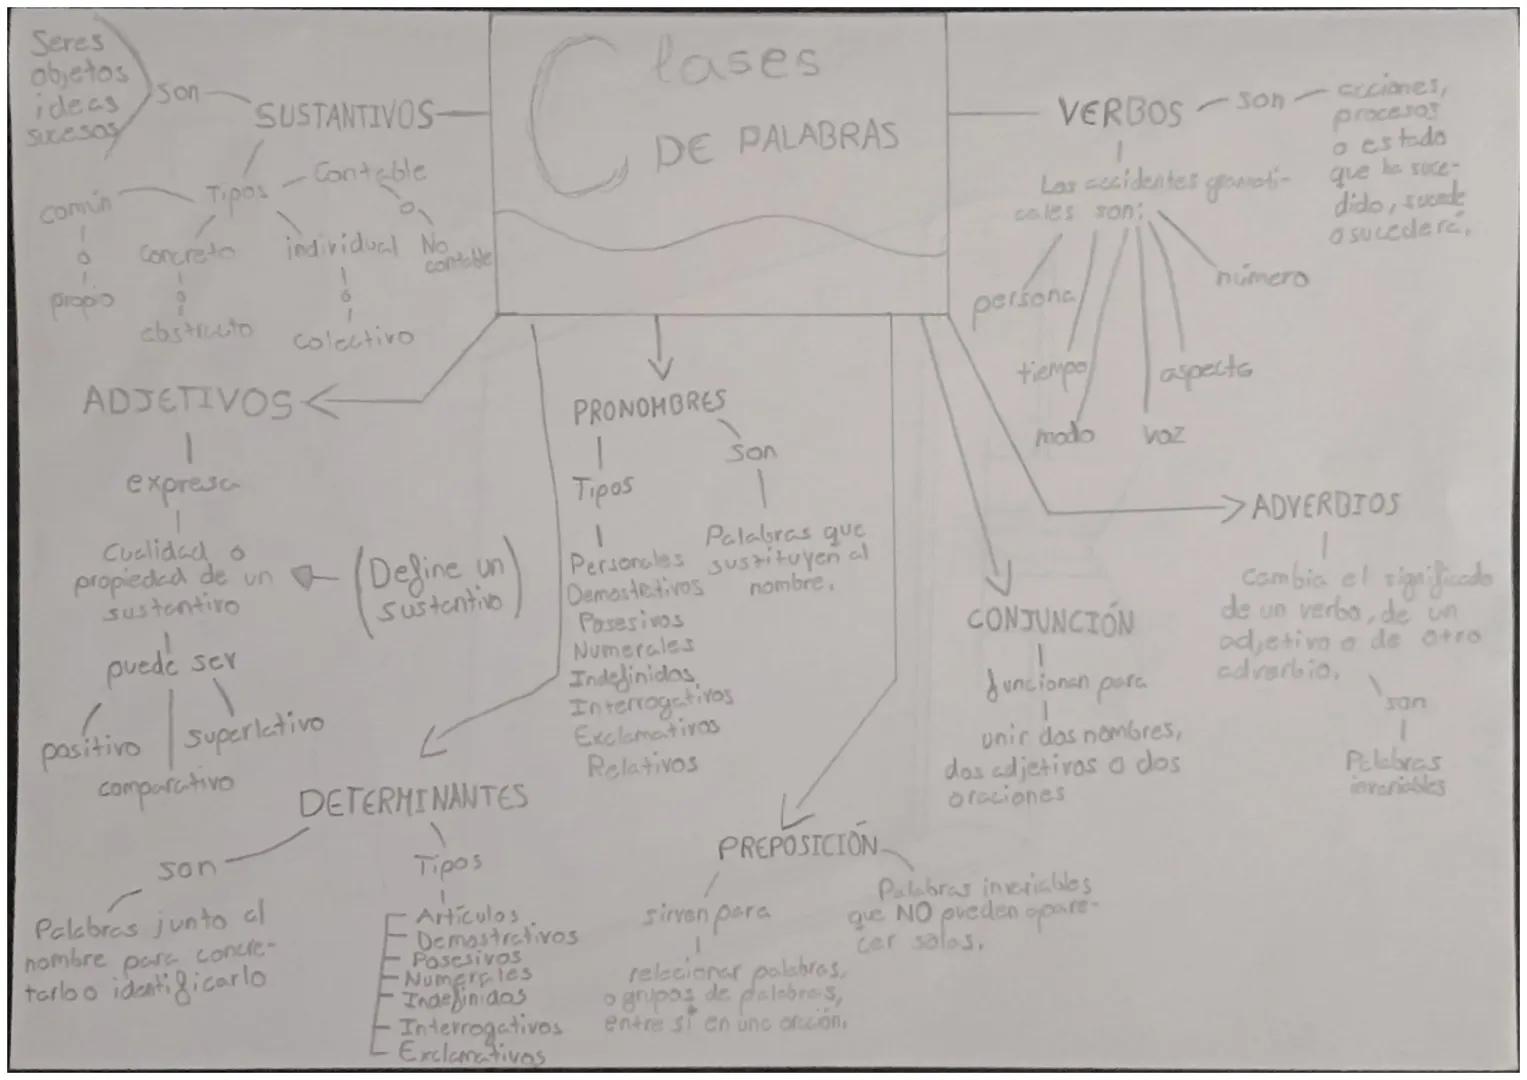 Clases
DE PALABRAS
Seres
objetos
ideas
sucesos
son
SUSTANTIVOS
Tipos
común
o
propio
concreto
o
abstracto
individual
o
colectivo
Contable
o
No
contable
VERBOS
son
acciones,
procesos
o estado
que ha suce-
dido, sucede
o sucederá.
Los accidentes gramati-
cales son:
persona
tiempo
modo
voz
aspecto
número
ADJETIVOS
expresa
Cualidad o
propiedad de un
sustantivo
(Define un
sustantivo)
puede ser
positivo
comparativo
superlativo
PRONOMBRES
Tipos
Personales
Demostrativos
Posesivos
Numerales
Indefinidos
Interrogativos
Exclamativos
Relativos
son
Palabras que
sustituyen al
nombre.
ADVERBIOS
Cambia el significado
de un verbo, de un
adjetivo o de otro
adverbio.
son
Palabras
invariables
CONJUNCIÓN
funcionan para
unir dos nombres,
dos adjetivos o dos
oraciones
DETERMINANTES
son
Palabras junto al
nombre para concre-
tarlo o identificarlo
Tipos
Artículos
Demostrativos
Posesivos
Numerales
Indefinidos
Interrogativos
Exclamativos
PREPOSICIÓN
sirven para
relacionar palabras,
o grupos de palabras,
entre sí en una oración.
Palabras invariables
que NO pueden apare-
cer solas.